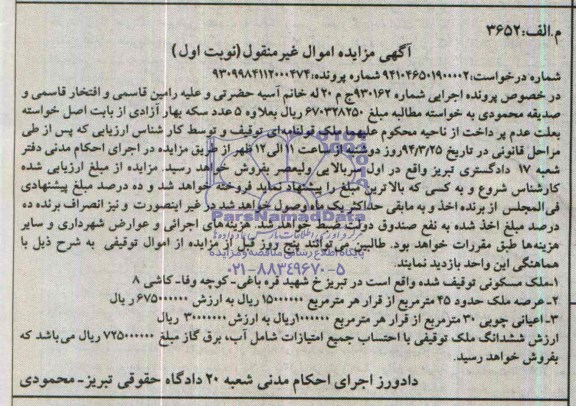 م.الف:۳۶۵۲
آگهی مزایده اموال غیرمنقول(نوبت اول)
شماره درخواست:۹۴۱۰۴۶۵۰۱۹۰۰۰۰۲ شماره پرونده:۹۳۰۹۹۸۴۱۱۲۰۰۰۴۷۴
در خصوص پرونده اجرایی شماره ۹۳۰۱۶۲ج م ۲۰ له خانم آسیه حضرتی و علیه رامین قاسمی و افتخار قاسمی و
صدیقه محمودی به خواسته مطالبه مبلغ ۶۷۰۳۲۸۲۵۰ ریال بعلاوه ۵ عدد سکه بهار آزادی از بابت اصل خواسته
بعلت عدم پرداخت از ناحیه محکوم علیهم ملک قولنامه‌ای توقیف و توسط کارشناس ارزیابی که پس از طی
مراحل قانونی در تاریخ ۹۴/۳/۲۵روز دوشنبه از ساعت ۱۱الی۱۲ ظهر از طریق مزایده در اجرای احکام مدنی دفتر
شعبه ۱۷ دادگستری تبریز واقع در اول سربالایی ولیعصر بفروش خواهد رسید. مزایده از مبلغ ارزیابی شده
کارشناس شروع و به کسی که بالاترین مبلغ را پیشنهاد نماید فروخته خواهد شد و ده درصد مبلغ پیشنهادی
فی‌المجلس از برنده اخذ و به مابقی حداکثر یک ماه وصول خواهد شد در غیر اینصورت و نیز انصراف برنده ده
درصد مبلغ اخذ شده به نفع صندوق دولت ضبط خواهد شد. هزینه‌های اجرائی و عوارض شهرداری و سایر
هزینه‌ها طبق مقررات خواهد بود. طالبین می‌توانند پنج روز قبل از مزایده از اموال توقیفی به شرح ذیل با
هماهنگی این واحد بازدید نمایند.
ParsNamadData
پایگاه اطلاع رسانی مناقصه و مزایده
۰۲۱-۸۸۳۴۹۶۷۰-۵
۱-ملک مسکونی توقیف شده واقع است در تبریز خ شهید قره باغی-کوچه وفا-کاشی ۸
۲-عرصه ملک حدود ۴۵ مترمربع از قرار هر مترمربع ۱۵۰۰۰۰۰۰ ریال به ارزش ۶۷۵۰۰۰۰۰۰ ریال
۳-اعیانی چوبی ۳۰ مترمربع از قرار هر مترمربع ۱۰۰۰۰۰۰ریال به ارزش ۳۰۰۰۰۰۰۰ ریال
ارزش ششدانگ ملک توقیفی با احتساب جمیع امتیازات شامل آب، برق گاز مبلغ ۷۲۵۰۰۰۰۰۰ ریال می‌باشد که
بفروش خواهد رسید.
دادورز اجرای احکام مدنی شعبه ۲۰ دادگاه حقوقی تبریز-محمودی